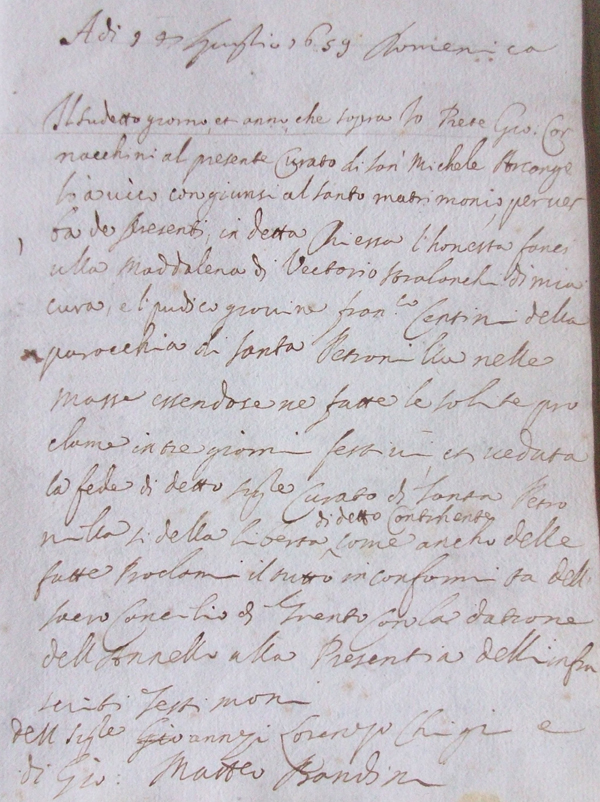 Adi luglio 1659 Domenica
Il sudetto giorno, et anno che sopra Io Prete Gio: Cor
nacchini al presente Curato di San Michele Arcange
lo a vico congiunsi al santo matrimonio, per ver
ba de Presenti, in detta Chiessa l'honesta fanci
ulla Maddalena di Vectorio di mia
cura, e l'pudico giovine Fran.co Centini della
parocchia di Santa Petronilla nelle
Masse essendose ne fatte le solite pro
clame in tre giorni festivi, et veduta
la fede di detto sig.re Curato di Santa Petro
nilla si della libertà di detto Contrahente come ancho delle
fatte Proclami il tutto in conformita dell
sacro Concilio di Trento con la datione
dell Annello alla Presentia dell infra
scritti Testimoni
dell sig.re Lorenzo Chigi e
di Gio: Matteo Bandini